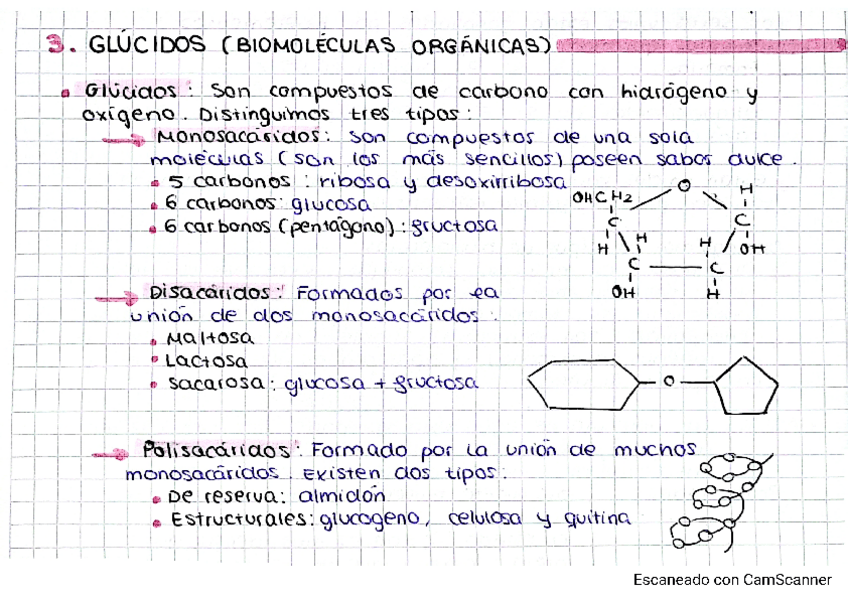 3. GLÚCIDOS (BIOMOLÉCULAS ORGÁNICAS)
Glúcidos: Son compuestos de carbono con hidrógeno y
oxígeno. Distinguimos tres tipos:
Monosacáridos: son compuestos de una sola
moléculas (son los más sencillos) poseen sabor dulce.
5 carbonos: ribosa y desoxirribosa
6 carbonos: glucosa
6 carbonos (pentágono): fructosa
OHCH2 O H
C C
H H H OH
C C
OH H
Disacáridos: Formados por la
unión de dos monosacáridos.
Maltosa
Lactosa
Sacarosa: glucosa + fructosa
O
Polisacáridos: Formado por la unión de muchos
monosacáridos. Existen dos tipos:
De reserva: almidón
Estructurales: glucogeno, celulosa y quitina
Escaneado con CamScanner